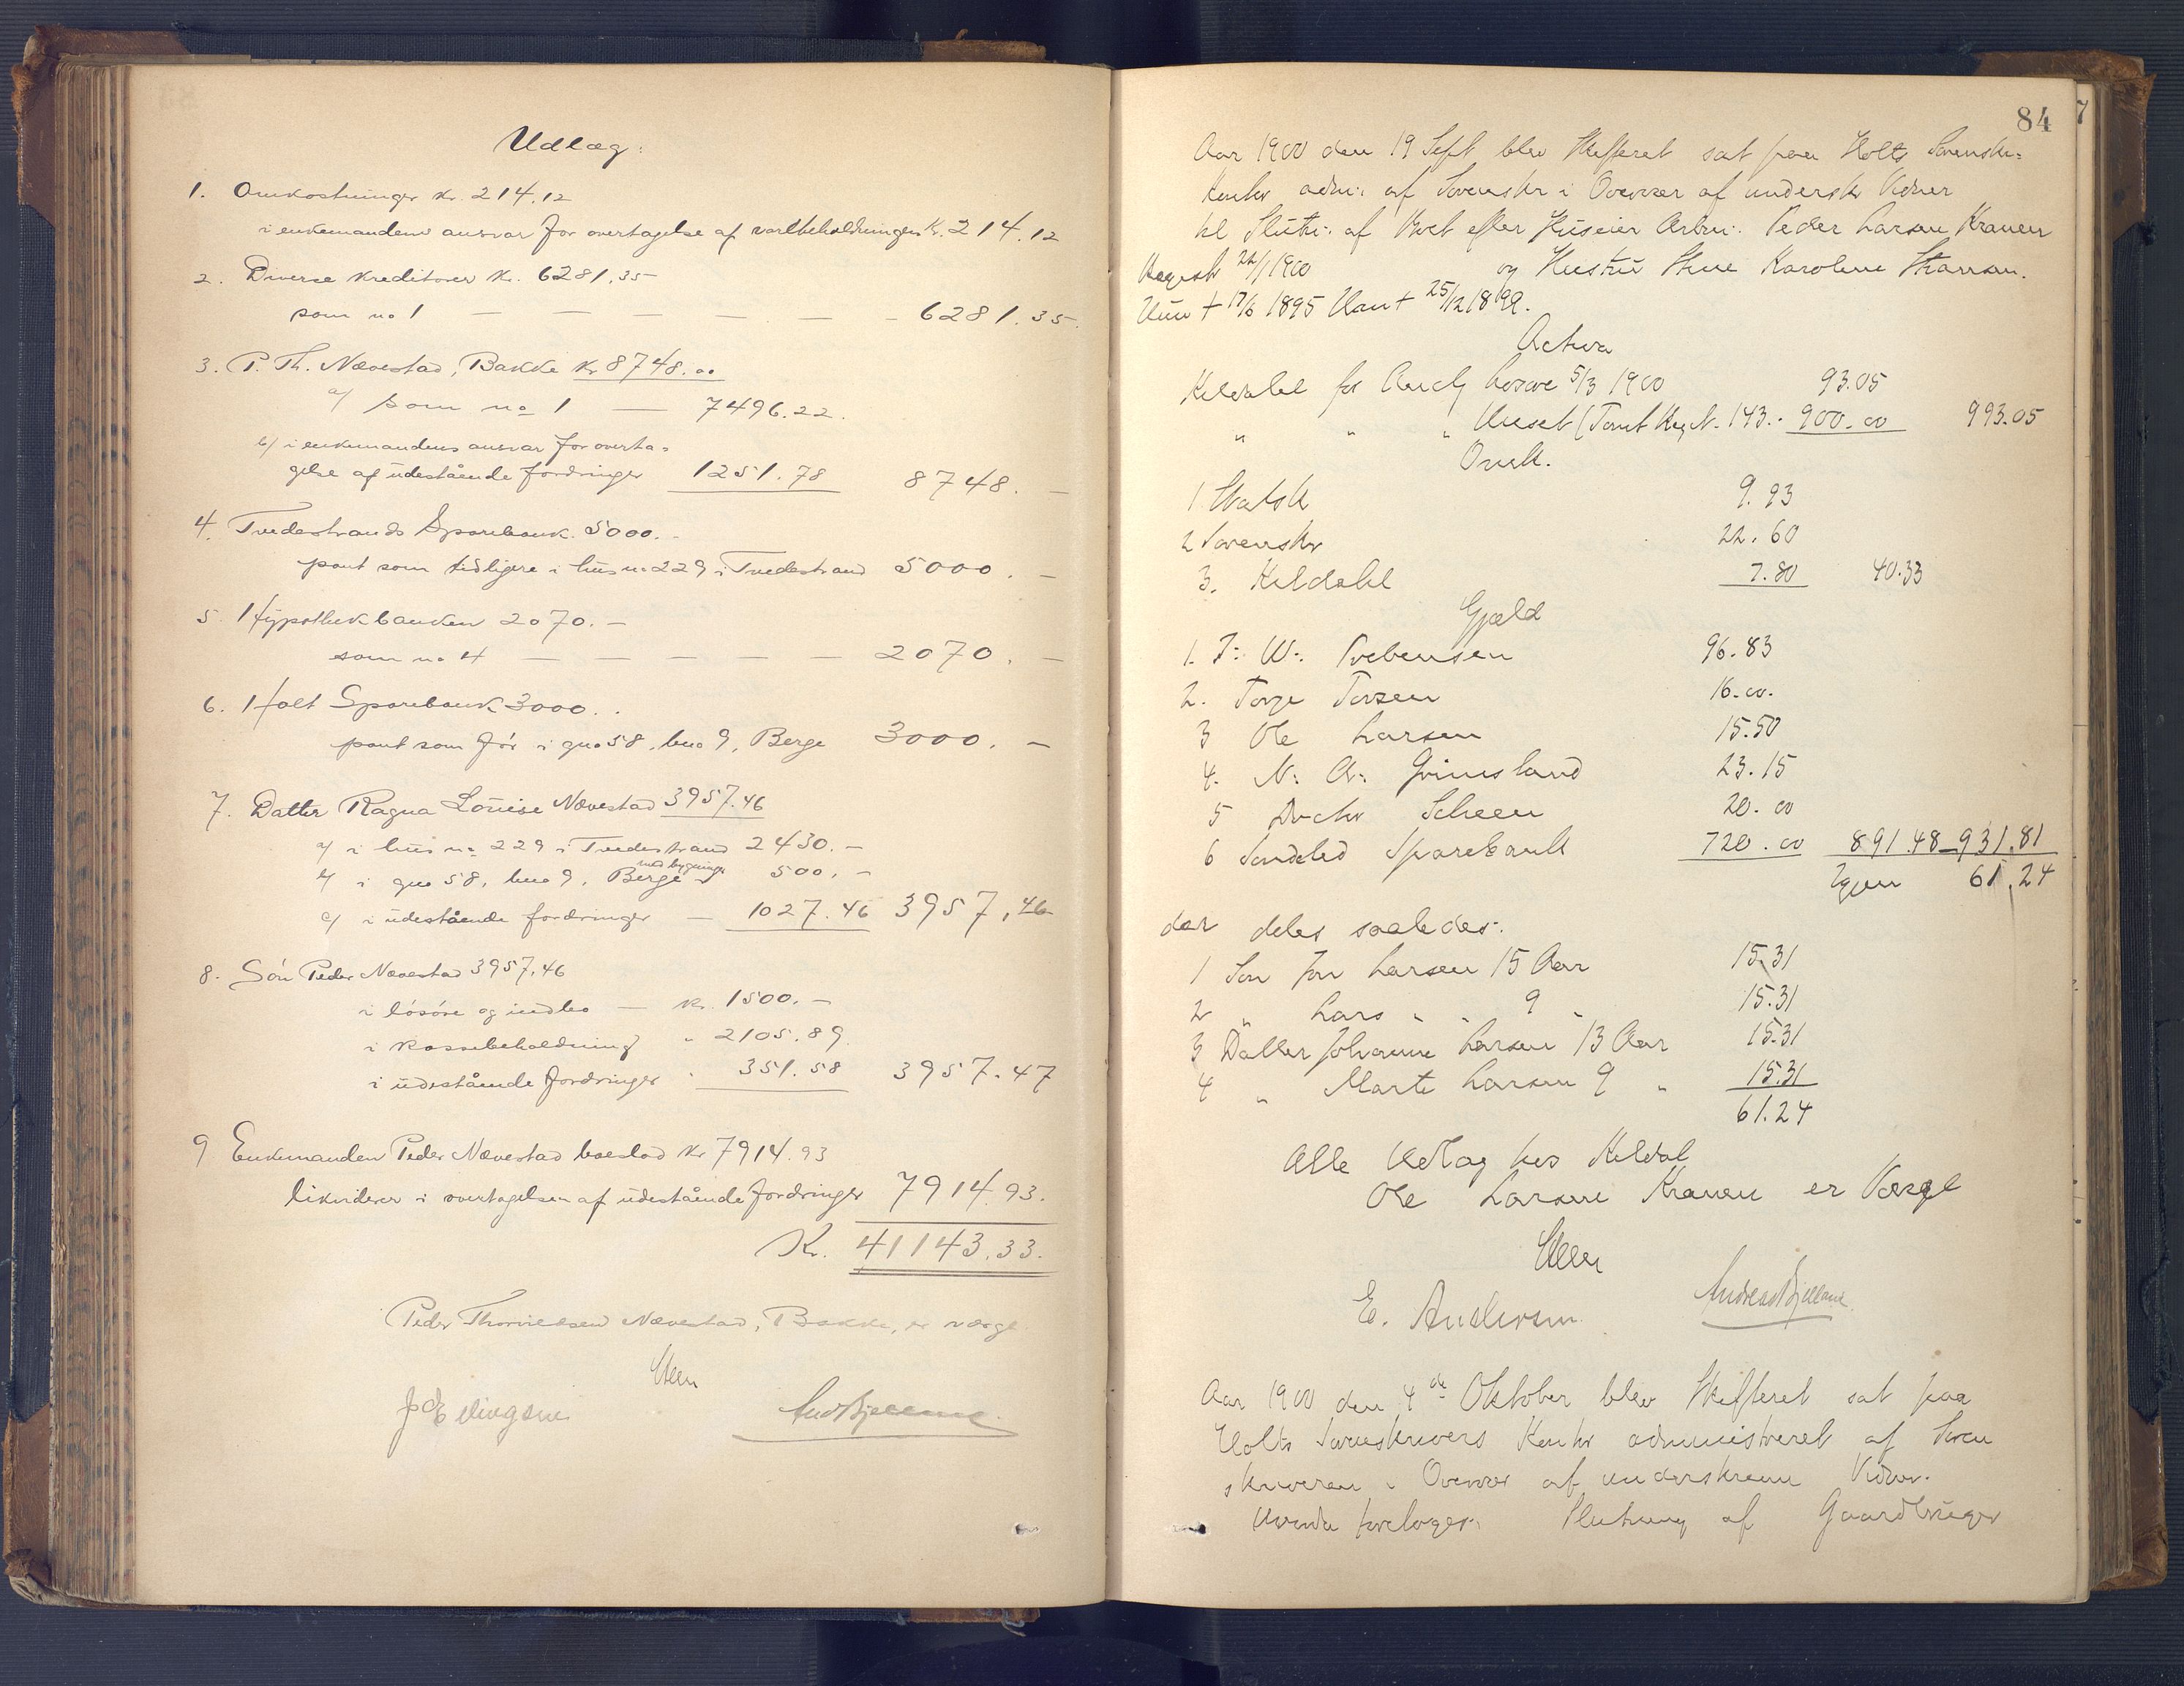 Udlæg:
1. Omkostninger kr. 214.12
i enkemandens ansvar for overtagelse af varebeholdningen Kr. 214.12
2. Diverse kreditorer kr. 6281.35
som no 1 — — — — — — 6281.35
3. P. Th. Nævestad, Bakke kr 8748.00
a/ som no 1 — 7496.22.
b/ i enkemandens ansvar for overta-
gelse af udestående fordringer 1251.78 8748. —
4. Tvedestrands Sparebank 5000. -
pant som tidligere i hus no 229 i Tvedestrand 5000. —
5. Hypothekbanken 2070. —
som no 4 — — — — — 2070. —
6. Holt Sparebank 3000. .
pant som før i gno 58, bno 9, Berge 3000. —
7. Datter Ragna Louise Nævestad 3957.46
a/ i hus no 229 i Tvedestrand 2430. —
b/ i gno 58, bno 9, Berge med bygninger 500. —
c/ i udestående fordringer — 1027.46 3957,46
8. Søn Peder Nævestad 3957,46
i løsøre og indbo — kr. 1500. —
i kassebeholdning " 2105.89
i udestående fordringer " 351.58 3957.47
9 Enkemanden Peder Nævestad boeslod kr 7914.93
likviderer i overtagelsen af udestående fordringer 7914.93.
Kr. 41143.33.
Peder Thorvildsen Nævestad, Bakke, er værge
J Ellingsen AndBjelland
84
7
Aar 1900 den 19 Sept blev Skifteret sat paa Holts Sorenskr-
kontor adm: af Sorenskr i Overvær af underskr Vidner
til Slutn: af Boet efter Huseier Arbm: Peder Larsen Kranen
22/1 1900 og Hustru Karoline
Hun + 17/6 1895 Han + 25/12 1899.
Activa
Kildahl for Aucts løsøre 5/3 1900 93.05
" " " Huset (Tomt 143.. 900.00 993.05
Omk.
1 Statsk 9.93
2 Sorenskr 22.60
3. Kildahl 7.80 40.33
Gjæld
1. J: W: Prebensen 96.83
2. Torje Torsen 16.00.
3 Ole Larsen 15.50
4. N: A: Grimsland 23.15
5 Doctor Scheen 20.00
6 Søndeled Sparebank 720.00 891.48 — 931.81
Igjen 61.24
der deles saaledes:
1 Søn Larsen 15 Aar 15.31
2 " Lars " " 9 " 15.31
3 Datter Johanne Larsen 13 Aar 15.31
4 " Marte Larsen 9 " 15.31
61.24
Alle Udlæg hos Kildal
Ole Larsen Kranen er Værge
E. Andersen AndreasBjelland
Aar 1900 den 4de Oktober blev Skifteret sat paa
Holts Sorenskrivers Kontor administreret af Soren
skriveren i Overvær af underskrevne Vidner.
Hvorda foretoges: Slutning af Gaardbruger